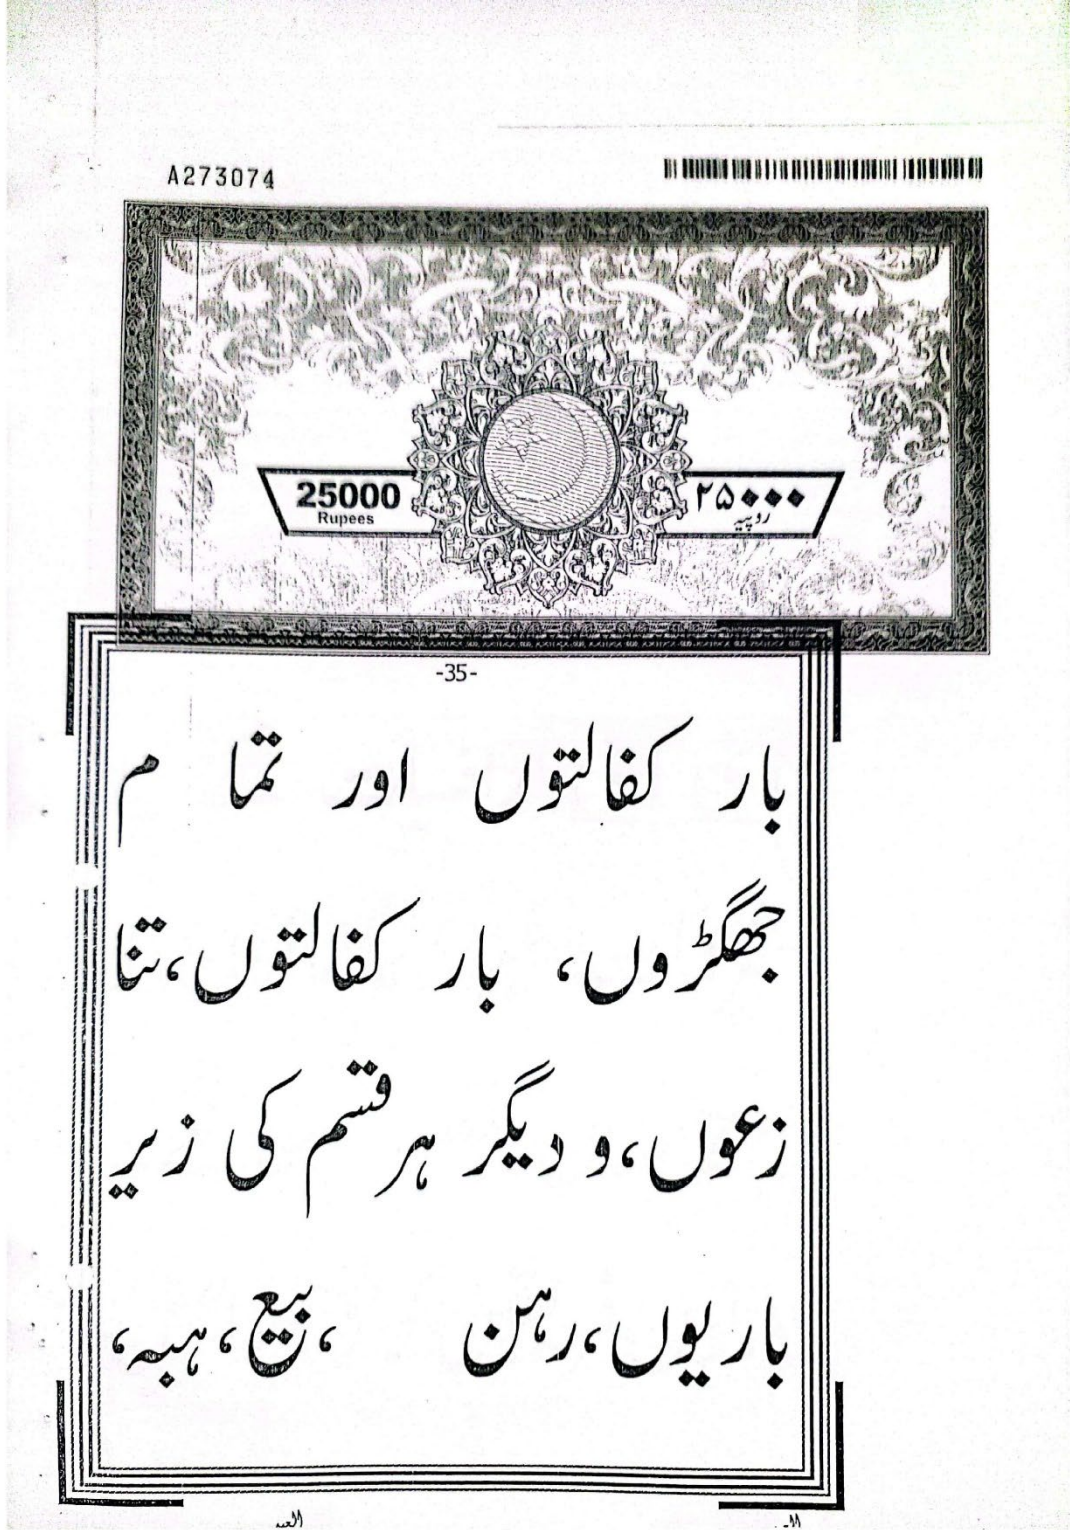 A273074
25000
Rupees
۲۵۰۰۰
روپیہ
-35-
بار کفالتوں اور تما م
جھگڑوں، بار کفالتوں،تنا
زعوں،و دیگر ہر قسم کی زیر
باریوں،رہن ،بیع،ہبہ،
العبد